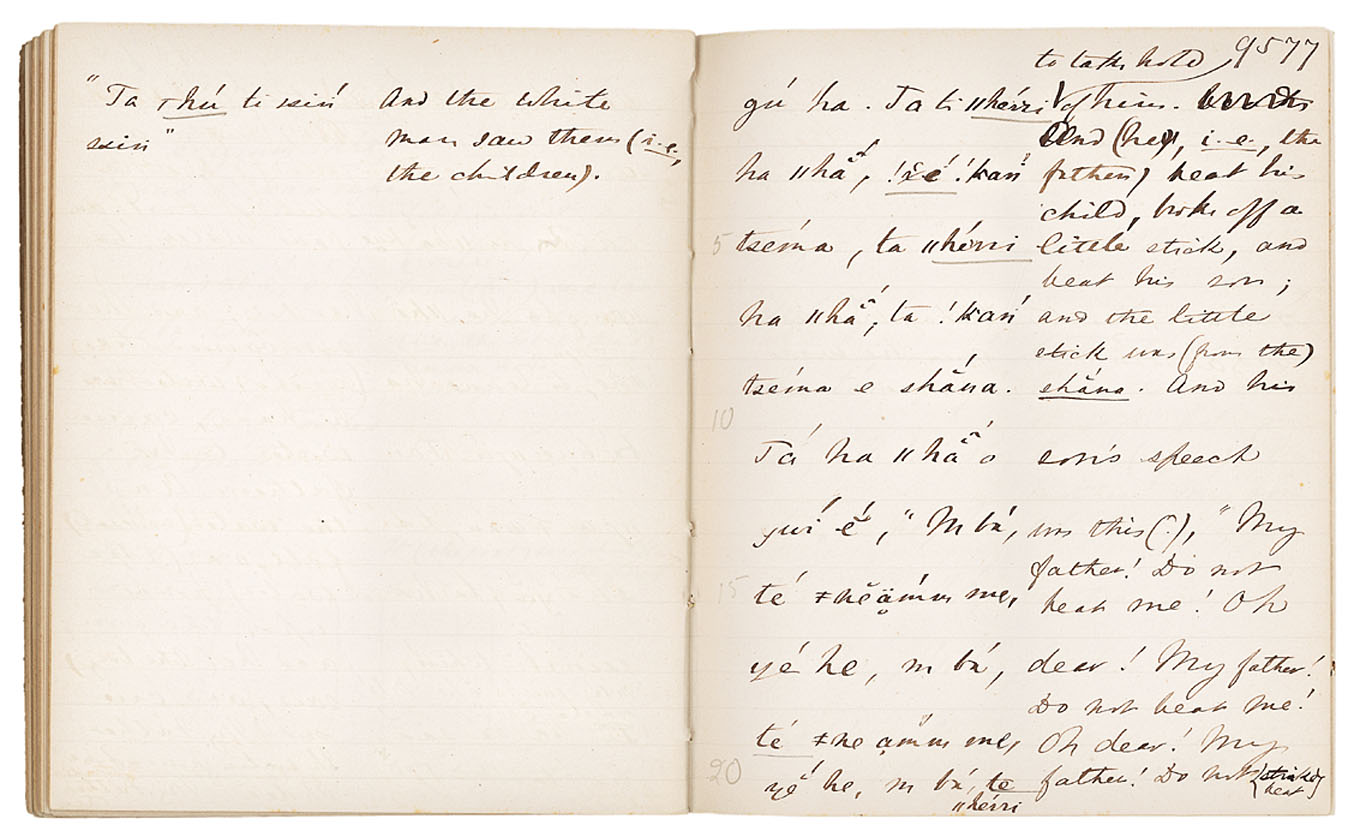 "Ta ɾhú ti ssiń And the white
ssiń" man saw them (i.e.,
the children).
9577
to take hold
gú ha. Ta ti ǁhérri of him.
And (he), i.e., the
ha ǁhã́, !kań father) beat his
child, broke off a
5 tséma, ta ǁhérri little stick, and
beat his son;
ha ǁhã́, ta !kań and the little
stick was (from the)
tséma e shắna. shắna. And his
10
Tá ha ǁhã́ ó son's speech
gwí ĕ́, "M bá, was this (?), "My
father! Do not
15 té ǂnĕạ̈́mm me, beat me! Oh
yé he, m bá, dear! My father!
Do not beat me!
té ǂne ạ̈mm me, Oh dear! My
20 yĕ́ he, m bá, te father! Do not {strike}
ǁhérri beat